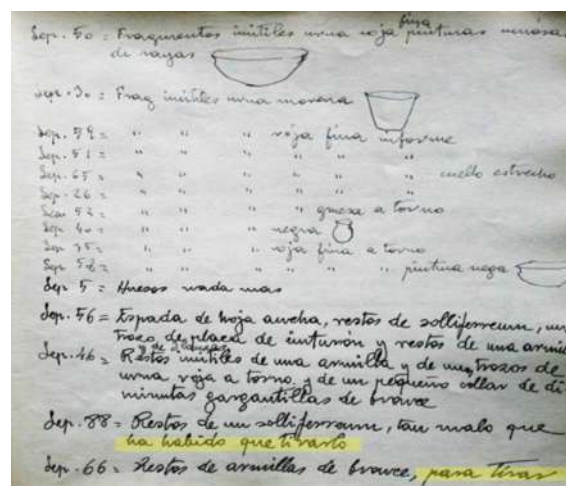 Sep. 50 = Fragmentos inútiles urna roja fina pinturas
de rayas
Sep. 30 = Frag inútiles urna morena
Sep. 59 = " " " roja fina informe
Sep. 51 = " " " " " "
Sep. 65 = " " " " " " cuello estrecho
Sep. 26 = " " " " " "
" " " " gruesa a torno
Sep. 40 = " " " negra
Sep. 35 = " " " roja fina a torno
Sep. 58 = " " " " " " " pintura nega
Sep. 5 = Huesos nada mas
Sep. 56 = Espada de hoja ancha, restos de solliferreum, un
trozo de placa de cinturón y restos de una armil
Sep. 46 = Restos inútiles de una armilla y de trozos de
urna roja a torno y de un pequeño collar de di
minutas gargantillas de bronce
Sep. 88 = Restos de un solliferreum, tan malo que
ha habido que tirarlo
Sep. 66 = Restos de armillas de bronce, para tirar